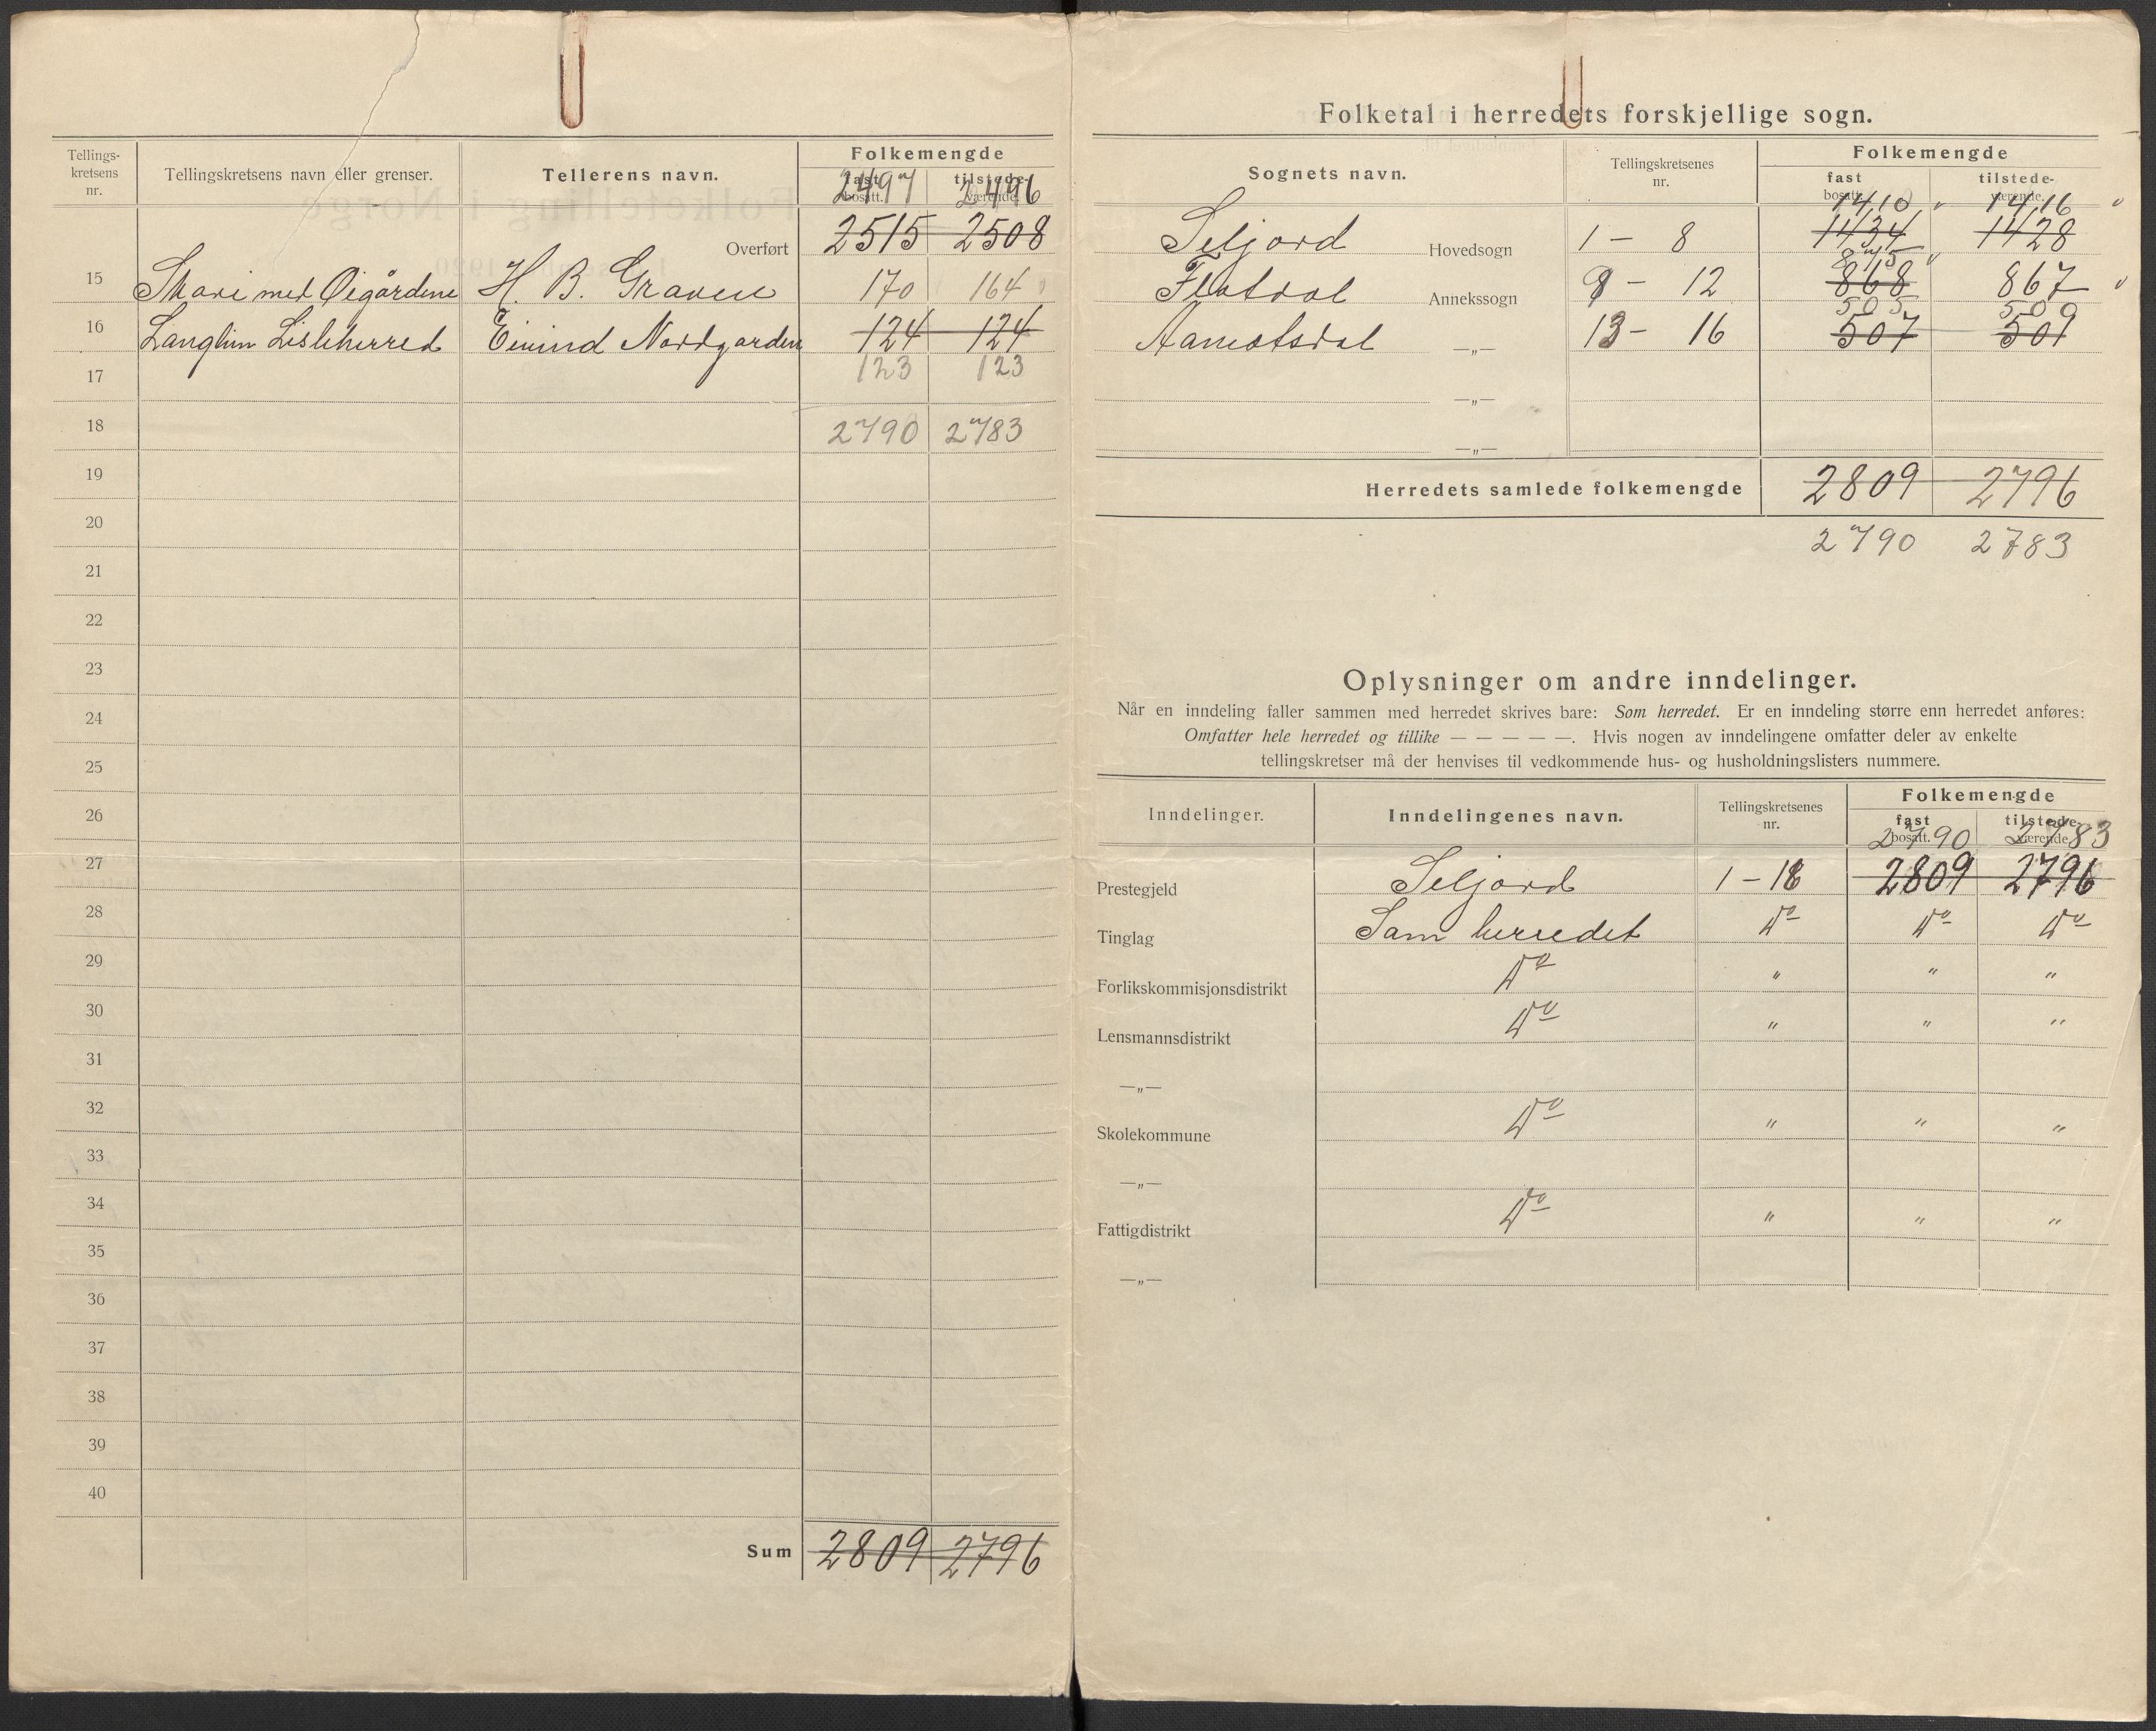 Tellings-
kretsens
nr.
Tellingskretsens navn eller grenser.
Tellerens navn.
Folkemengde
fast
bosatt.
tilstede-
værende.
2497 2496
Overført 2515 2508
15 Skori med Øigårdene H. B. Graven 170 164
16 Langlim Lisleherred Eivind Nordgarden 124 124
17 123 123
18 2790 2783
19
20
21
22
23
24
25
26
27
28
29
30
31
32
33
34
35
36
37
38
39
40
Sum 2809 2796
Folketal i herredets forskjellige sogn.
Sognets navn.
Tellingskretsenes
nr.
Folkemengde
fast
bosatt.
tilstede-
værende.
1410 " 1416 "
Seljord Hovedsogn 1 - 8 1434 1428
875 "
Flatdal Annekssogn 9 - 12 868 867 "
505 509
Aamotsdal —„— 13 - 16 507 501
—„—
—„—
Herredets samlede folkemengde 2809 2796
2790 2783
Oplysninger om andre inndelinger.
Når en inndeling faller sammen med herredet skrives bare: Som herredet. Er en inndeling større enn herredet anføres:
Omfatter hele herredet og tillike — — — — —. Hvis nogen av inndelingene omfatter deler av enkelte
tellingskretser må der henvises til vedkommende hus- og husholdningslisters nummere.
Inndelinger.
Inndelingenes navn.
Tellingskretsenes
nr.
Folkemengde
fast
bosatt.
tilstede-
værende.
2790 2783
Prestegjeld Seljord 1 - 16 2809 2796
Tinglag Som herredet Do Do Do
Forlikskommisjonsdistrikt Do " " "
Lensmannsdistrikt Do " " "
—„—
Skolekommune Do " " "
—„—
Fattigdistrikt Do " " "
—„—